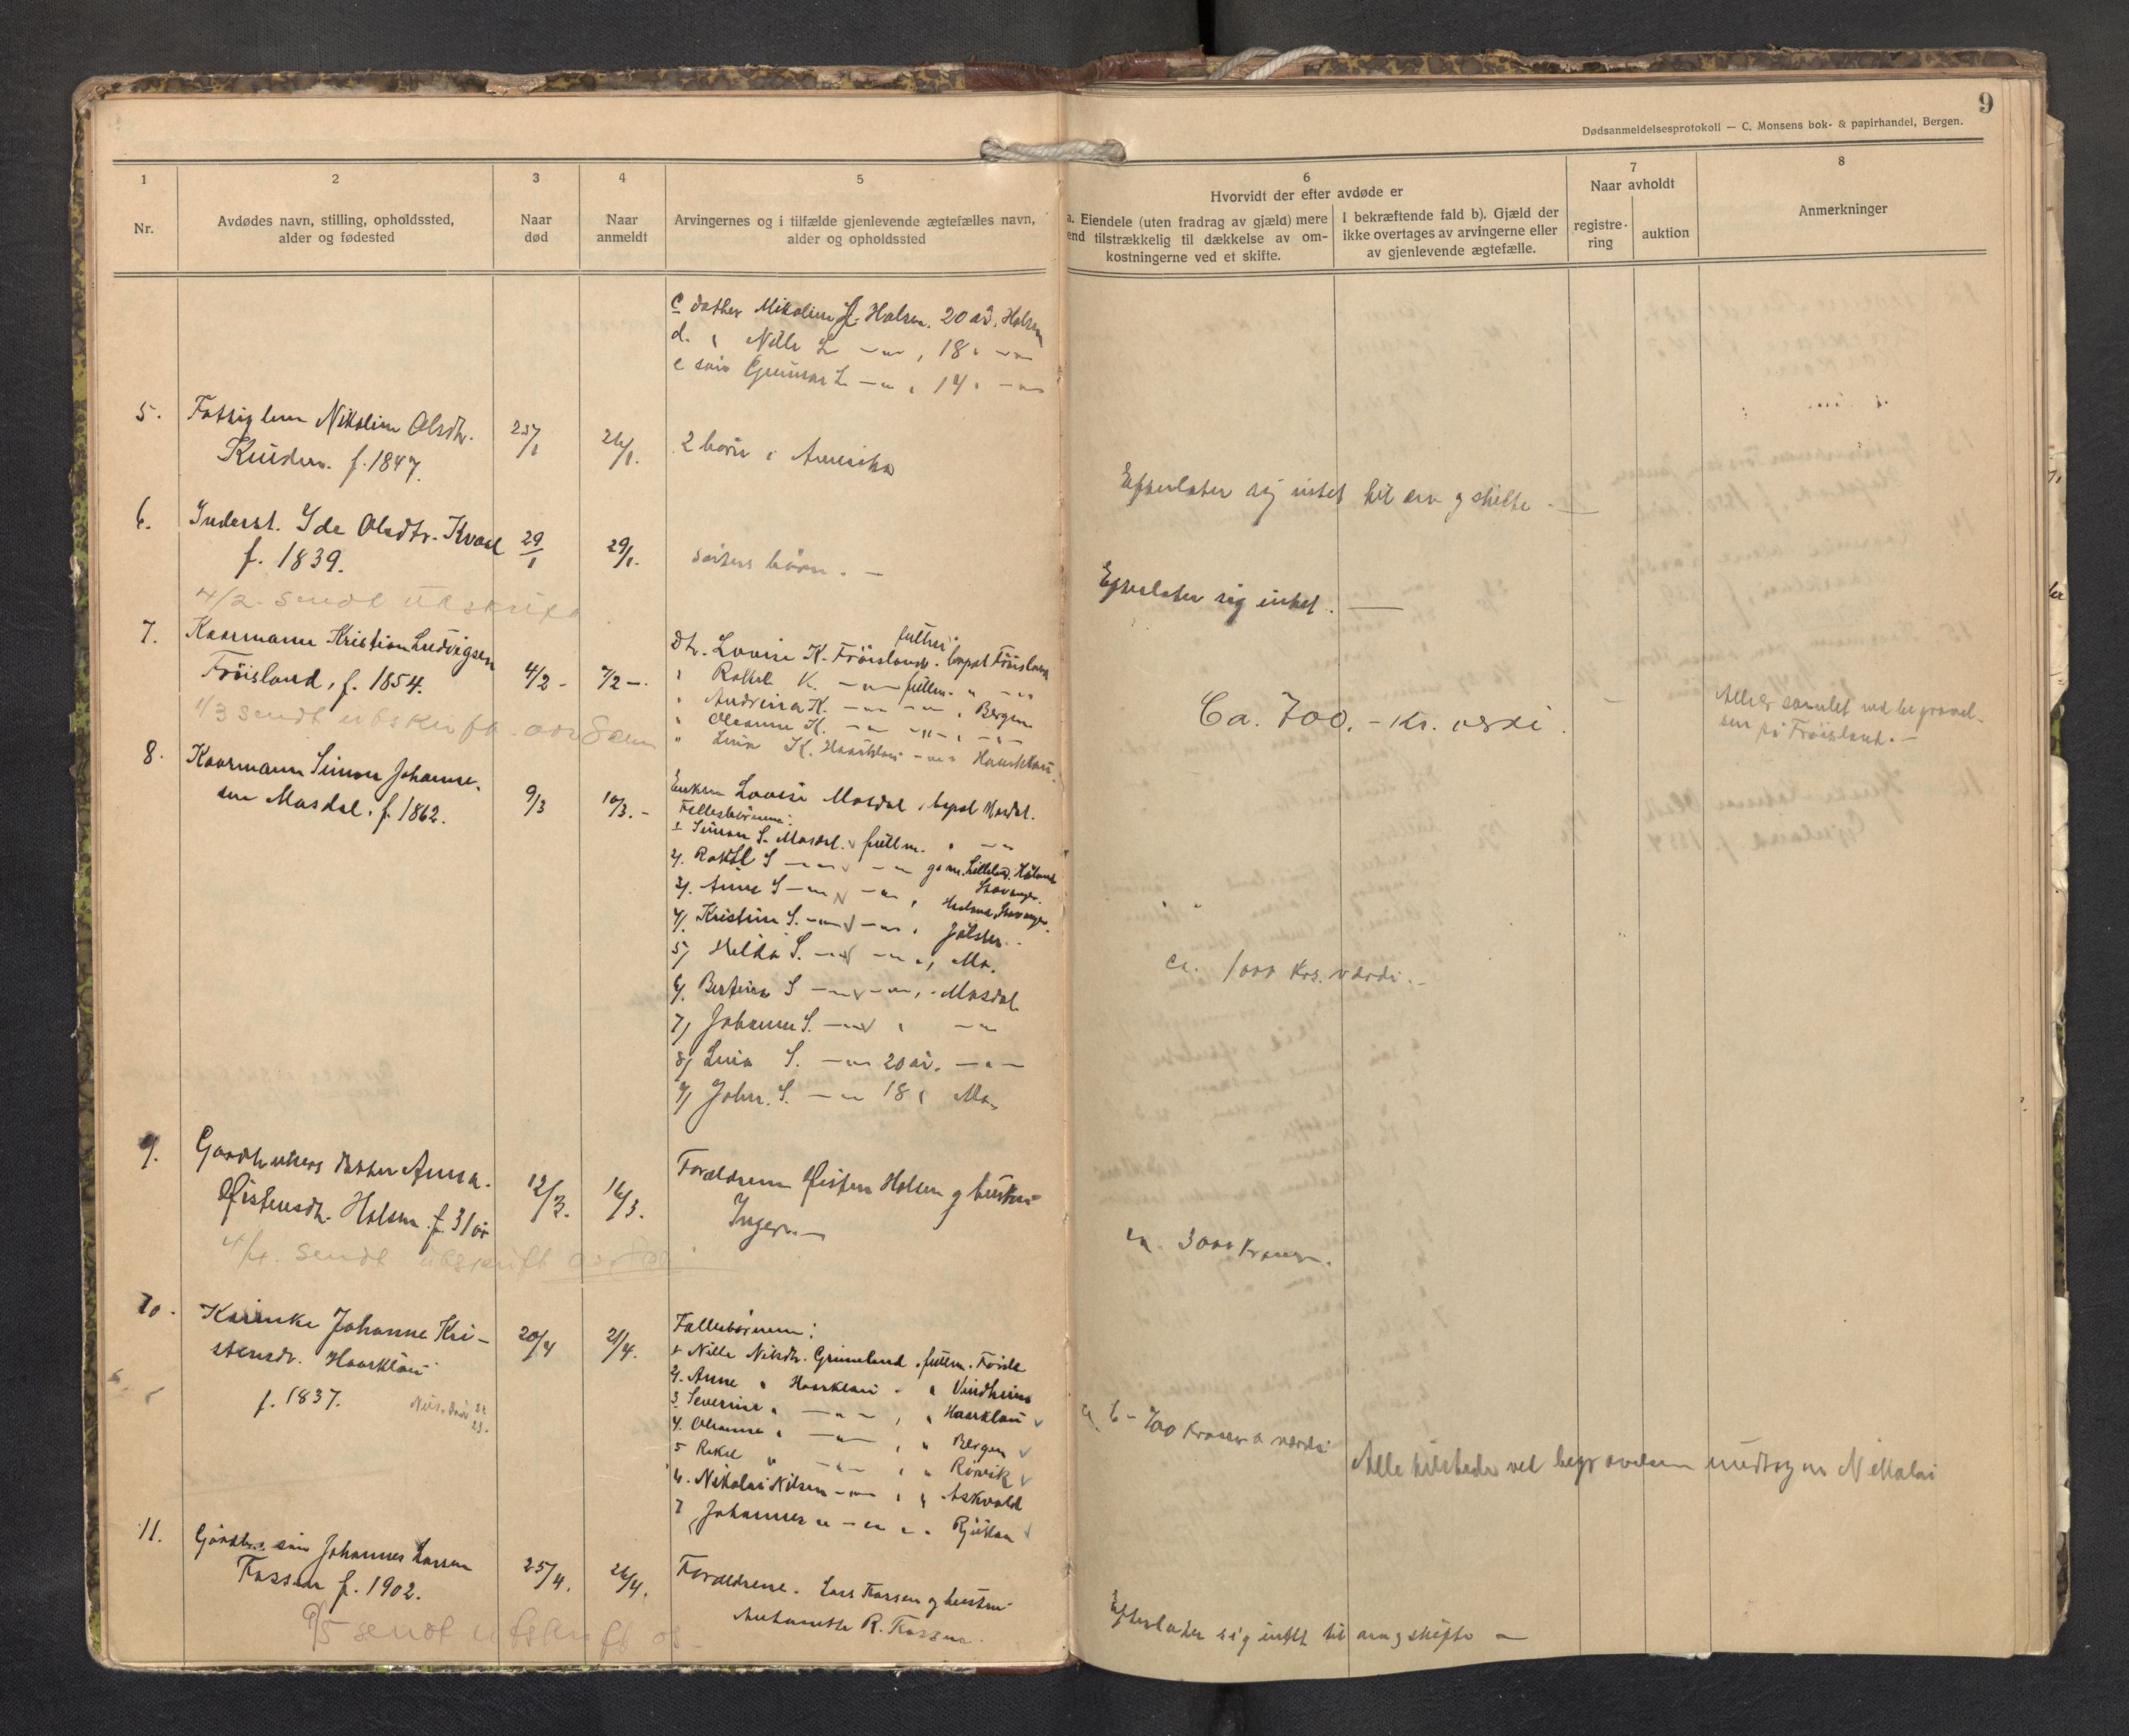 9
Dødsanmeldelsesprotokoll — C. Monsens bok- & papirhandel, Bergen.
1
2
3
4
5
6
7
8
Nr.
Avdødes navn, stilling, opholdssted,
alder og fødested
Naar
død
Naar
anmeldt
Arvingernes og i tilfælde gjenlevende ægtefælles navn,
alder og opholdssted
Hvorvidt der efter avdøde er
a. Eiendele (uten fradrag av gjæld) mere
end tilstrækkelig til dækkelse av om-
kostningerne ved et skifte.
I bekræftende fald b). Gjæld der
ikke overtages av arvingerne eller
av gjenlevende ægtefælle.
Naar avholdt
registre-
ring
auktion
Anmerkninger
c datter Nikoline L. Holsen. 20 år. Holsen
d. " Nille L — " — , 18 " — " —
e søn Gunnar L — " — , 14 " — " —
5. Fattiglem Nikoline Olsdtr. 25/1 26/1. 2 børn i Amerika
f. 1847.
Efterlater sig intet til arv og skifte. —
6. Inderst. Ida Olsdtr. Kvaal 29/1 29/1. søsters børn. —
f. 1839.
Efterlater sig intet. —
4/2. sendt utskrift
7. Kaarmann Kristian Ludvigsen
Frøisland, f. 1854. 4/2 - 7/2 —.
Dtr. Lovise K. Frøisland. fullm. bopæl Frøisland
" Rakel K. — " — fullm. " — " —
" Andrina K. — " — — " — , Bergen
" Oleanna K. — " — — " — , — " —
" Lina K. Haarklau — " — Haarklau.
Ca. 700,- kr. verdi.
Alle er samlet ved begravel-
sen på Frøisland. —
1/3 sendt utskrift
8. Kaarmann Simon Johanne-
sen Mosdal. f. 1862. 9/3 10/3. -
Enken Lovise Mosdal, bopæl Mosdal.
Fællesbørnene:
1 Simon S. Mosdal. fullm. " — " —
2/. Rakel S — " — — " — g. m.
Stavanger.
3/. Anna S — " — — " — , Stavanger.
4/. Kristine S. — " — — " — , Jølster.
5/ Hilda S. — " — — " — , Mo.
6/. Bertina S — " — — " — , Mosdal
7/ Johanne S. — " — " — " —
8/ Lina S. — " — 20 år. — " —
9/ Johan. S. — " — 18 " Mo.
ca. 1000 krs. værdi. -
9. Gaardbrukers datter Anna
Østensdtr. Holsen. f. 31 år 12/3. 16/3.
Forældrene Østen Holsen og hustru
Inger. —
ca. 3000 Kroner.
4/4. sendt utskrift
10. Kaarenke Johanne Kri-
stensdr. Haarklau 20/4 21/4.
f. 1837.
Fællesbørnene:
1 Nille Nilsdtr. Grimeland. fullm. Førde
2. Anne " Haarklau " Vindheim
3. Severine " — " — , " Haarklau
4. Oleanne " — " — , " Bergen
5 Rakel " — " — , " Rørvik
6. Nikolai Nilsen — " — , " Askvold
7 Johannes " — " — " Rjukan
6 - 700 kroners værdi
Alle tilstede ved begravelsen undtagen Nikolai
11. Gaardbr. søn Johannes Larsen
Fossen f. 1902. 25/4. 26/4.
Forældrene. Lars Fossen og hustru
R. Fossen.
Efterlater sig intet til arv og skifte —
9/5 sendt utskrift